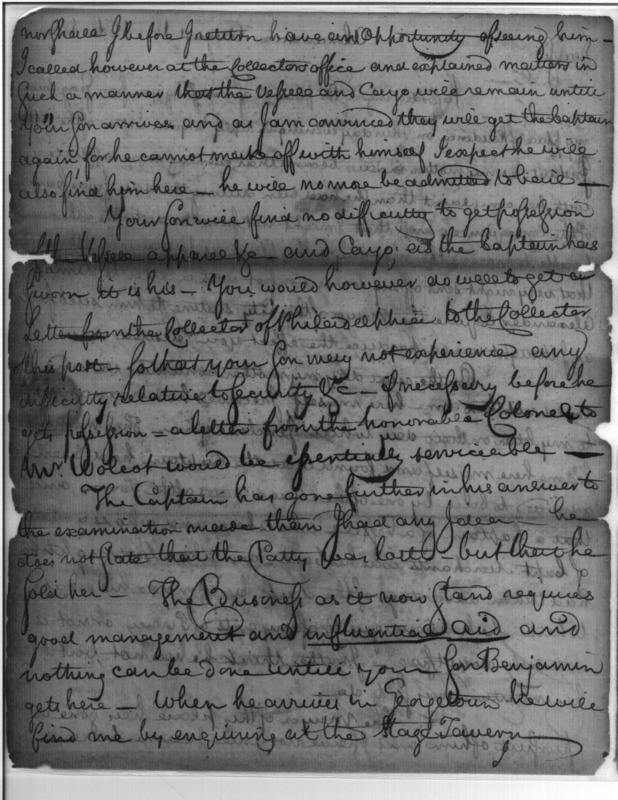 nor shall I before I return have an opportunity of seeing him –
I called however at the Collectors office and explained matters in
Such a manner that the Vessell and Cargo will remain untill
your Son arrives and as I am convinced they will get the Captain
again, for he cannot make off with himself I expect he will
also find him here – he will no more be admitted to bail –
Your Son will find no difficulty to get possession
Vessell apparel &c – and Cargo, as the Captain has
Sworn it is his – You would however do well to get a
Letter from the Collector of Philadelphia to the Collector
of this port – so that your Son may not experience any
difficulty relative to Security &c – if necessary before he
gets possession – a letter from the honorable Colonel to
Mr Wolcot would be essentially serviceable –
The Captain has gone further in his answer to
the examination made than I had any Idea – he
does not state that the Patty was lost – but that he
Sold her – The Business as it now Stand requires
good management and influential aid and
nothing can be done untill your Son Benjamin
gets here – When he arrives in Georgetown he will
find me by enquiring at the Stage Tavern